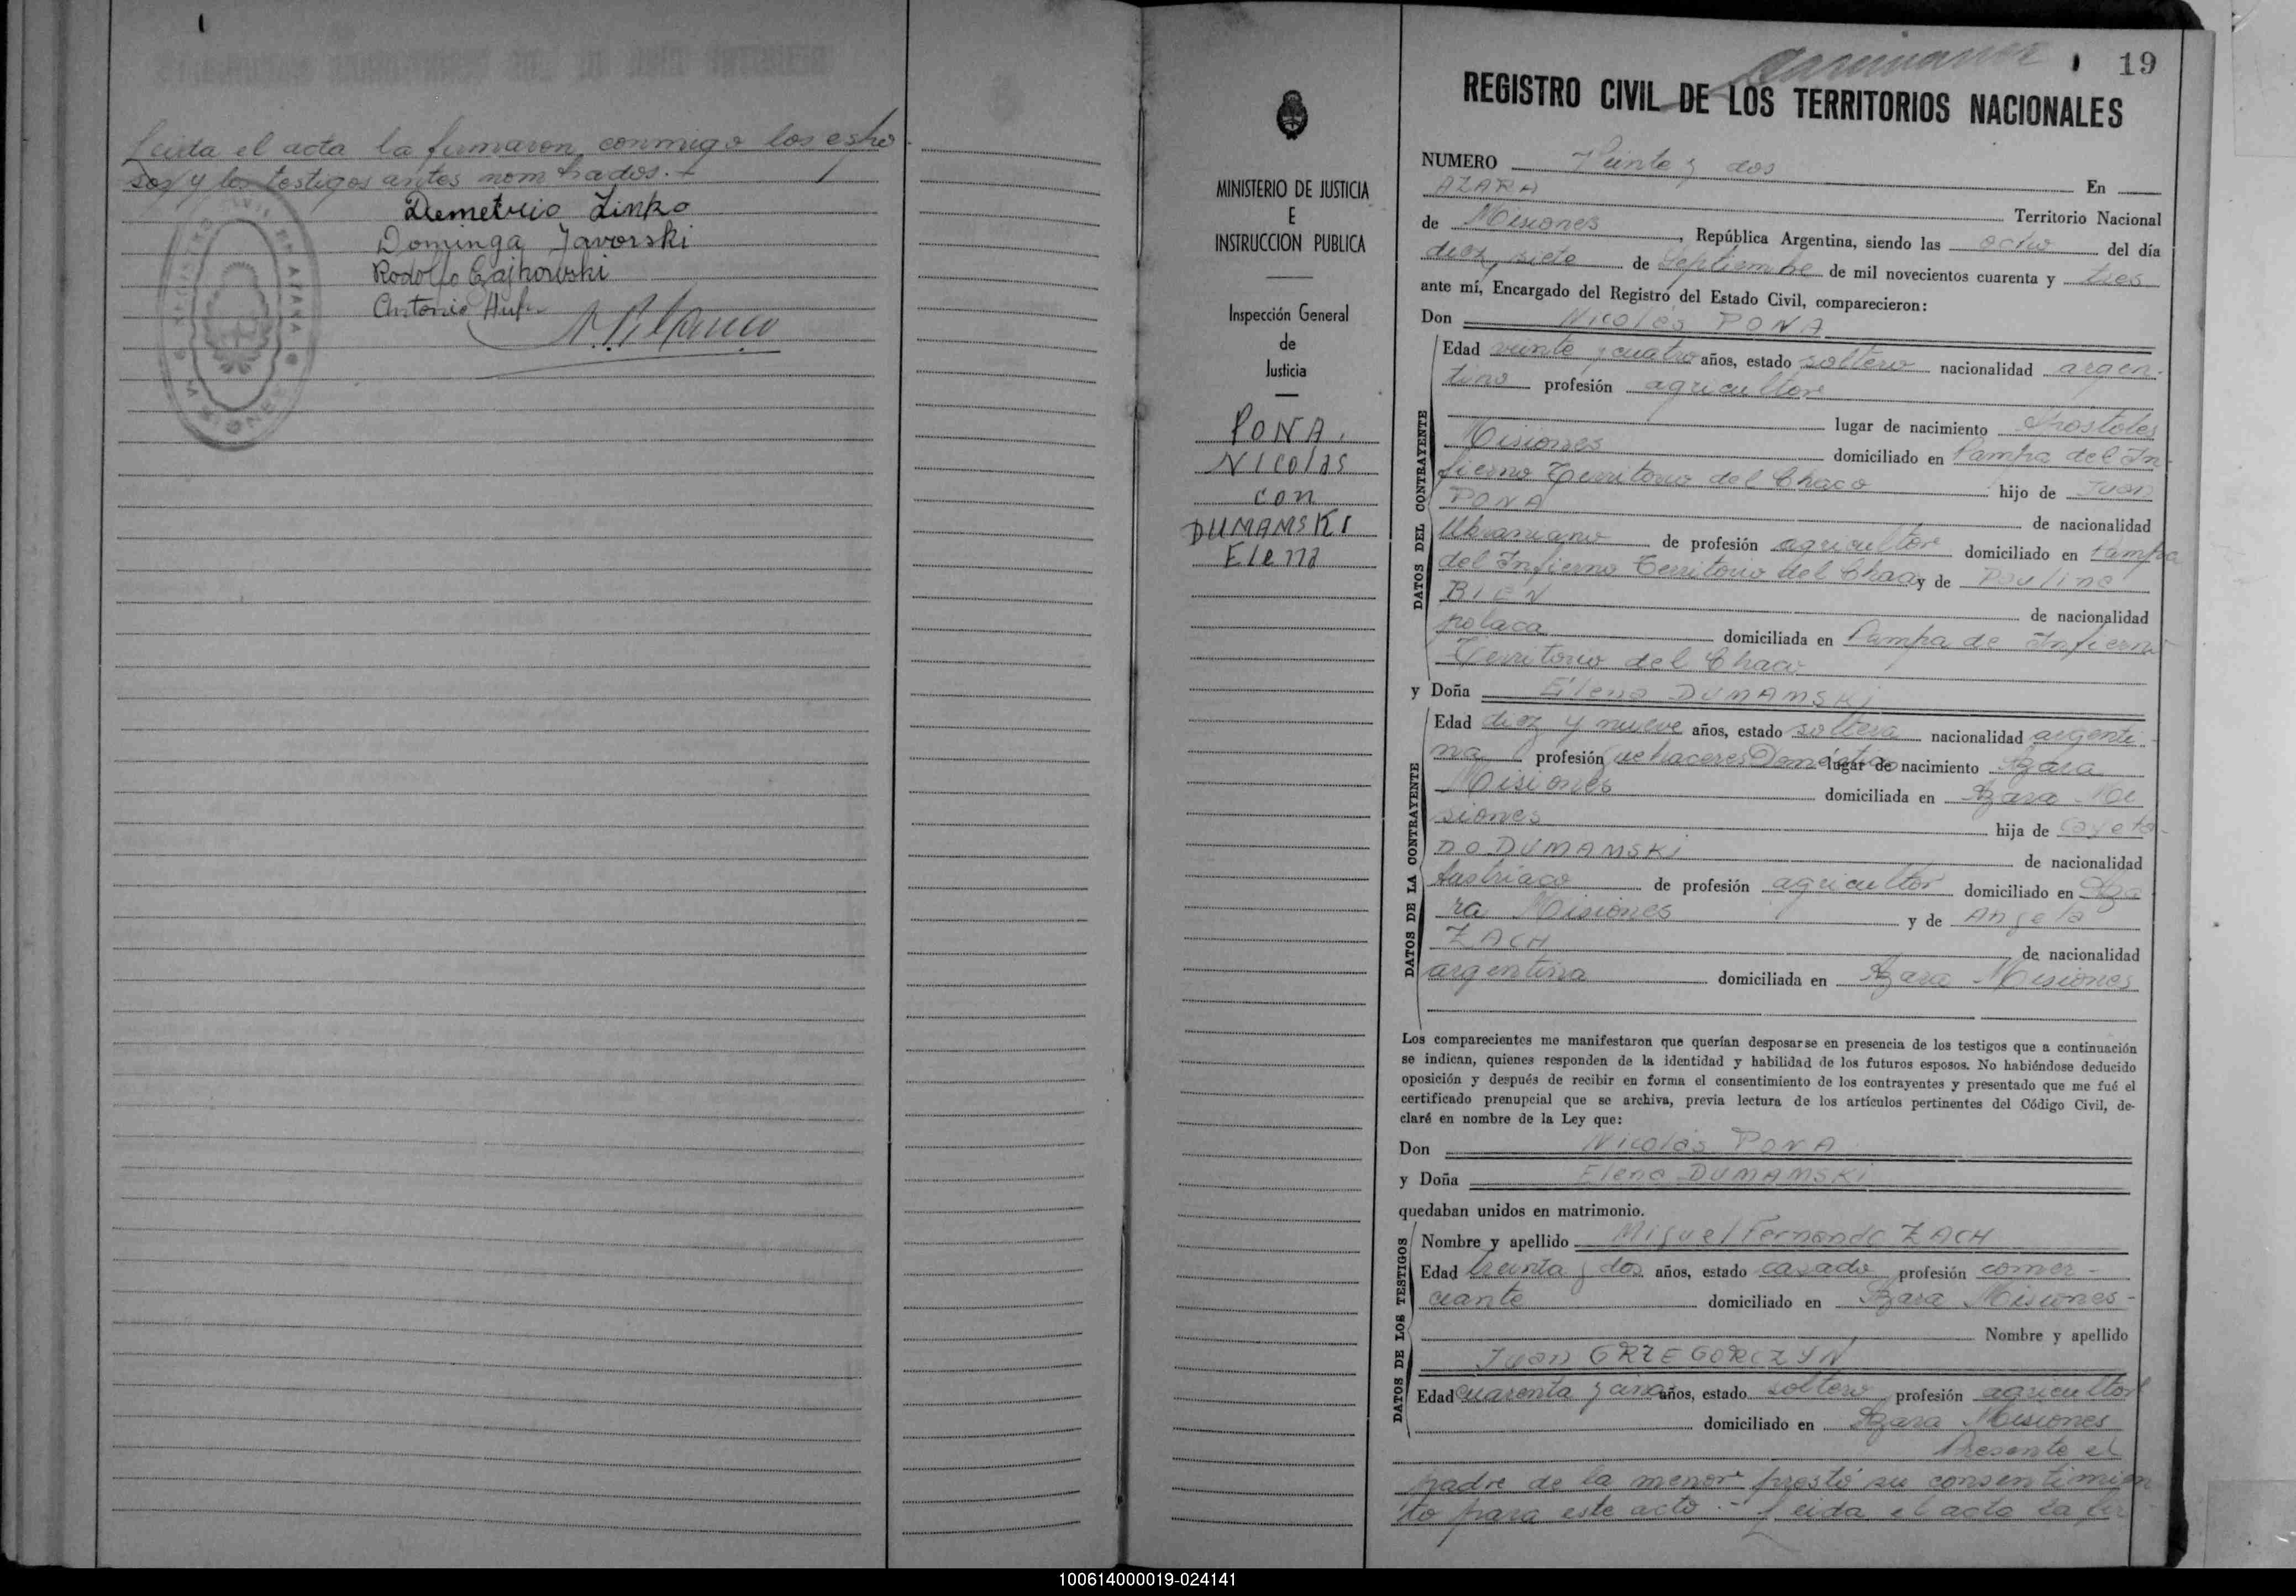 Leida el acta la firmaron conmigo los espo
sos y los testigos antes nombrados.-
Demetrio Linko
Dominga Javorski
Rodolfo
Antonio
MINISTERIO DE JUSTICIA
E
INSTRUCCION PUBLICA
Inspección General
de
Justicia
PONA,
Nicolás
con
DUMAMSKI
Elena
19
REGISTRO CIVIL DE LOS TERRITORIOS NACIONALES
NUMERO Veinte y dos En
AZARA Territorio Nacional
de Misiones, República Argentina, siendo las ocho del día
diez y siete de Septiembre de mil novecientos cuarenta y tres
ante mí, Encargado del Registro del Estado Civil, comparecieron:
Don Nicolás PONA
DATOS DEL CONTRAYENTE
Edad veinte y cuatro años, estado soltero nacionalidad argen-
tino profesión agricultor
lugar de nacimiento Apóstoles
Misiones domiciliado en Pampa del In-
fierno Territorio del Chaco hijo de Juan
PONA de nacionalidad
Ukraniano de profesión agricultor domiciliado en Pampa
del Infierno Territorio del Chaco y de Paulina
BIEN de nacionalidad
polaca domiciliada en Pampa de Infierno
Territorio del Chaco
y Doña Elena DUMAMSKI
DATOS DE LA CONTRAYENTE
Edad diez y nueve años, estado soltera nacionalidad argenti-
na profesión quehaceres Domésticos lugar de nacimiento Azara
Misiones domiciliada en Azara Mi
siones hija de Cayeta-
no DUMAMSKI de nacionalidad
Austriaco de profesión agricultor domiciliado en Aza
ra Misiones y de Angela
ZACH de nacionalidad
argentina domiciliada en Azara Misiones
Los comparecientes me manifestaron que querían desposarse en presencia de los testigos que a continuación
se indican, quienes responden de la identidad y habilidad de los futuros esposos. No habiéndose deducido
oposición y después de recibir en forma el consentimiento de los contrayentes y presentado que me fué el
certificado prenupcial que se archiva, previa lectura de los artículos pertinentes del Código Civil, de-
claré en nombre de la Ley que:
Don Nicolás PONA
y Doña Elena DUMAMSKI
quedaban unidos en matrimonio.
DATOS DE LOS TESTIGOS
Nombre y apellido Miguel Fernando ZACH
Edad treinta y dos años, estado casado profesión comer-
ciante domiciliado en Azara Misiones-
Nombre y apellido
Juan GRZEGORCZYN
Edad cuarenta y cinco años, estado soltero profesión agricultor
domiciliado en Azara Misiones
Presente el
padre de la menor prestó su consentimien
to para este acto.- Leida el acta la fir
100614000019-024141